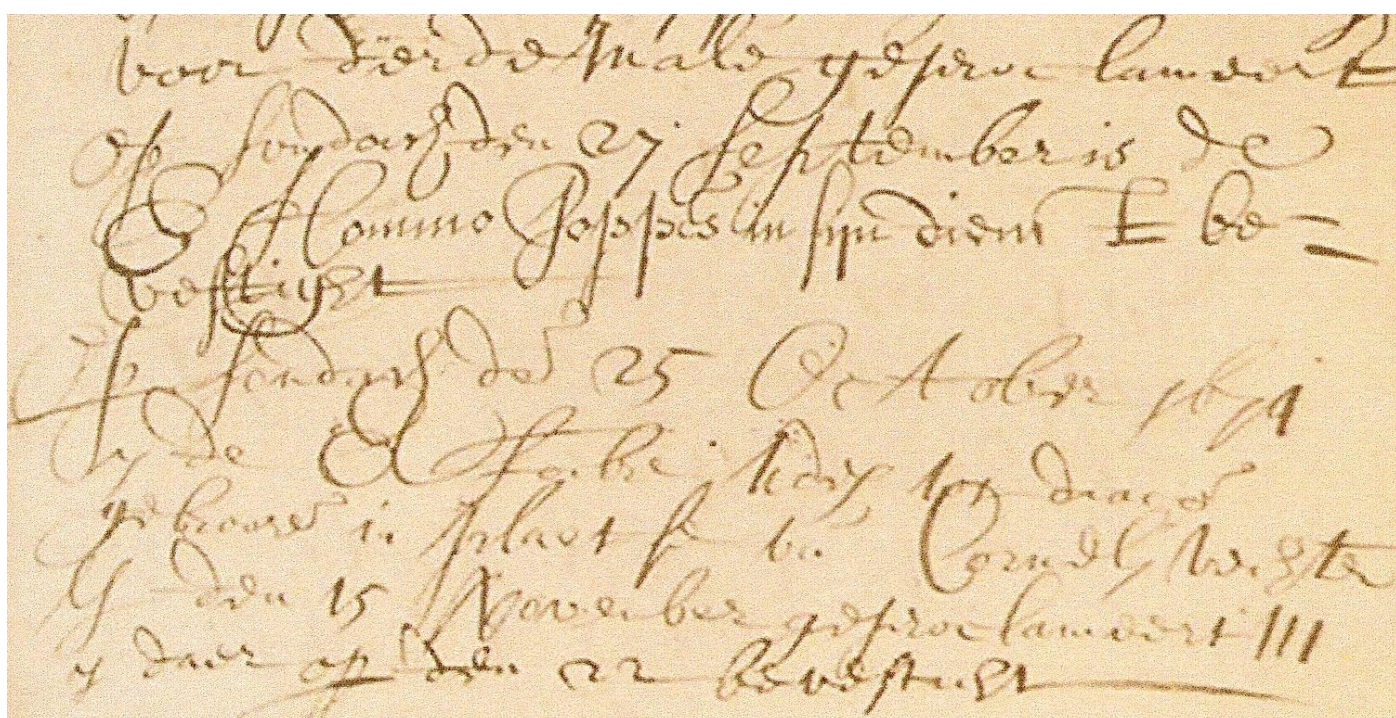 voor derde Male geproclameert
op sondach den 27 September is de
E Hommo Poppes in sijn dienst be=
vestight
op sondach den 25 October 1671
is de E tot drager
gekooren in plaets van Cornelis
is den 15 November geproclameert III
en daer op den 22 bevesticht